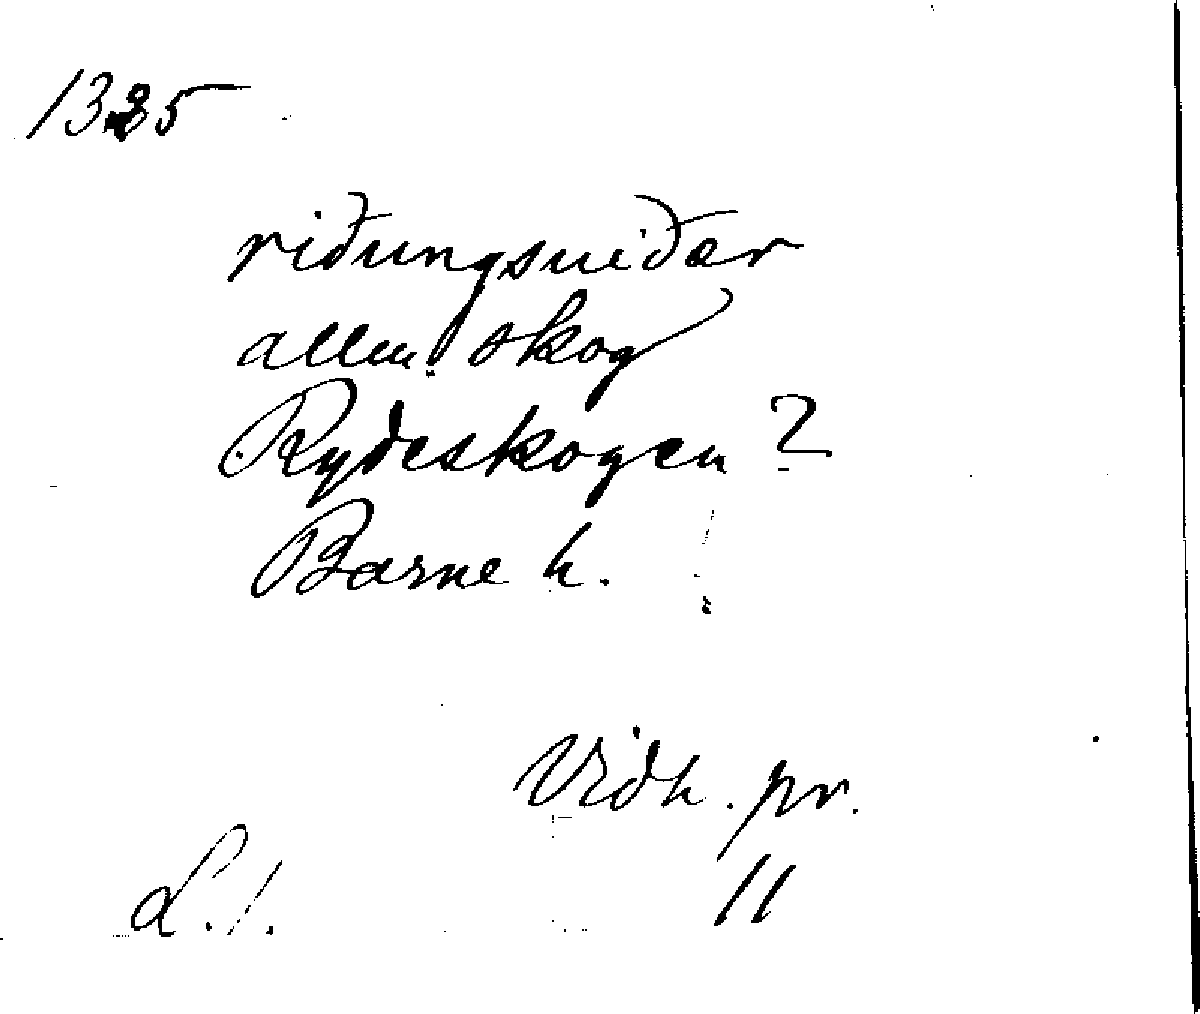 1325
riðungsuiðær
allm. skog
Rydeskogen ?
Barne h.
Vidh. pr.
L. 1. 11